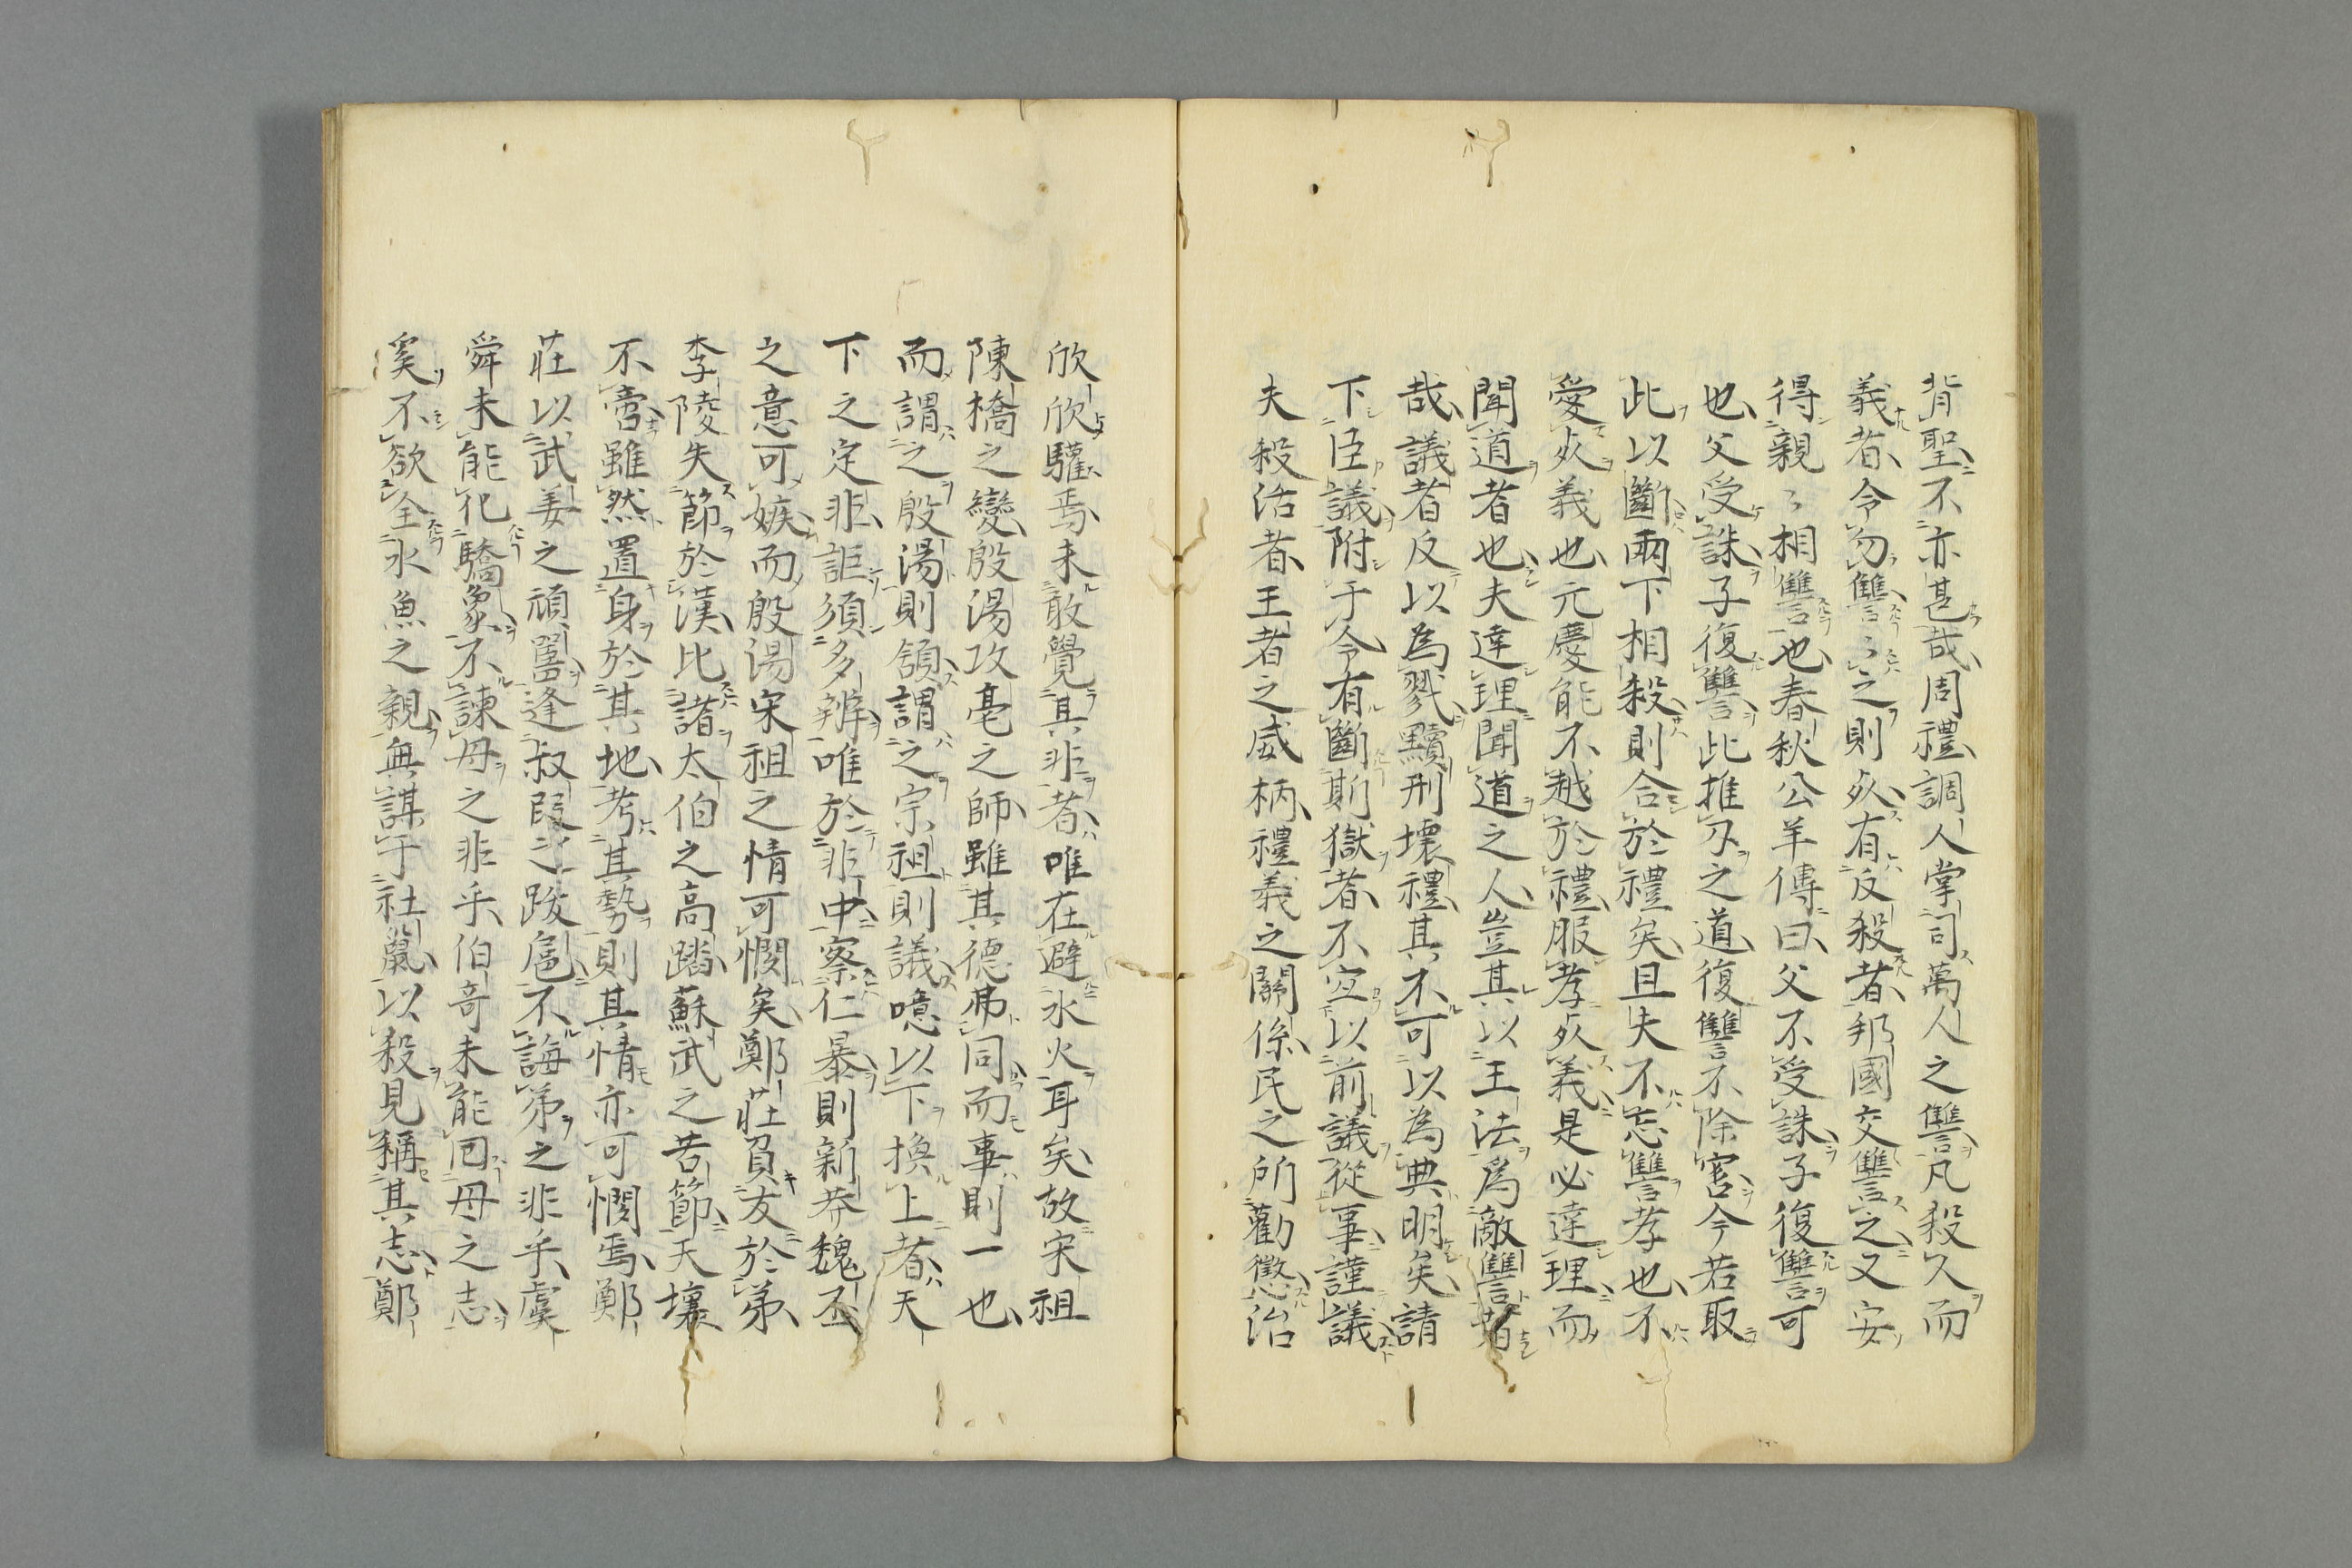 背聖不亦甚哉周禮調人掌司萬人之讐凡殺人而
義者令勿讐〻之則死有反殺者邦國交讐之又安
得親〻相讐也春秋公羊傳曰父不受誅子復讐可
也父受誅子復讐此推刃之道復讐不除害今若取
此以斷兩下相殺則合於禮矣且夫不忘讐孝也不
愛死義也元慶能不越於禮服孝死義是必達理而
聞道者也夫達理聞道之人豈其以王法為敵讐者
哉議者反以為戮黷刑壞禮其不可以為典明矣請
下臣議附于令有斷斯獄者不宜以前議從事謹議
夫殺活者王者之威柄禮義之關係民之所勸懲治
欣欣驩焉未敢覺其非者唯在避水火耳矣故宋祖
陳橋之變殷湯攻亳之師雖其德弗同而事則一也
而謂之殷湯則頷謂之宗祖則議噫以下換上者天
下之定非詎須多辨唯於非中察仁暴則新莽魏丕
之意可嫉而殷湯宋祖之情可憫矣鄭莊負友於弟
李陵失節於漢比諸太伯之高踏蘇武之苦節天壤
不啻雖然置身於其地考其勢則其情亦可憫焉鄭
莊以武姜之頑嚚逢叔段之跋扈不誨弟之非乎虞
舜未能化驕象不諫母之非乎伯奇未能回母之志
奚不欲全水魚之親無謀于社鼠以殺見稱其志鄭